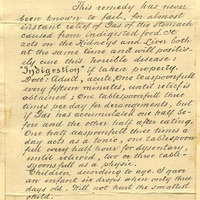 This remedy has never
been known to fail, for almost
instant relief of Gas of the Stomach
caused from indigested food It
acts on the Kidneys and Liver both
at the same time and will positiv-
ely cure this horrible disease:
"Indigestion" if taken properly.
Dose: Adult, acute, One teaspoonfull
every fifteen minutes, until relief is
obtained: One tablespoonfull three
times per day for derangements, but
if Gas has accumulated one half be-
fore and the other half after eating.
One half teaspoonfull three times a
day acts as a tonic, one tablespoon
full every half hour for dysentary,
until relieved, two or three table-
spoons full as a physic.
Children, according to age. I gave
an infant six drops when only three
days old. Will not hurt the smallest
child.